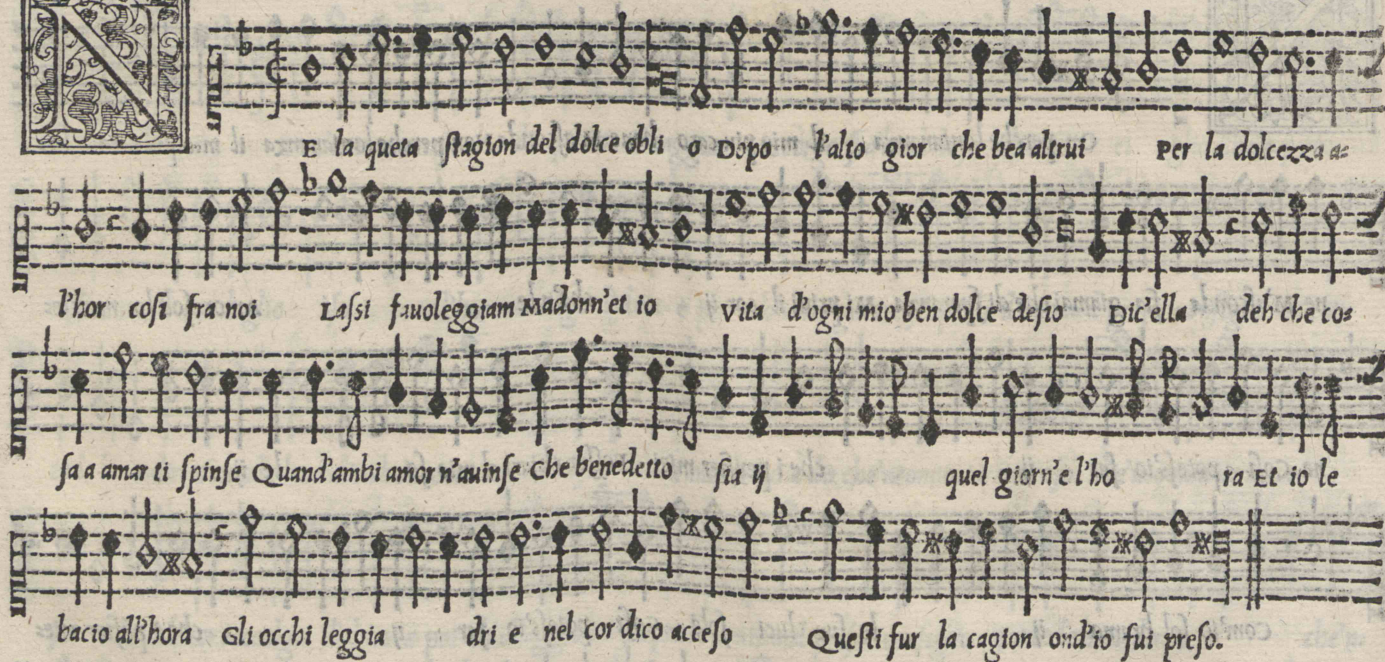 NE la queta ſtagion del dolce obli o Dopo l'alto gior che bea altrui Per la dolcezza a=
l'hor coſi fra noi Laſsi fauoleggiam Madonn'et io Vita d'ogni mio ben dolce deſio Dic'ella deh che co=
ſa a amar ti ſpinſe Quand'ambi amor n'auinſe Che benedetto ſia ij quel giorn'e l'ho ra Et io le
bacio all'hora Gli occhi leggia dri e nel cor dico acceſo Queſti fur la cagion ond'io fui preſo.